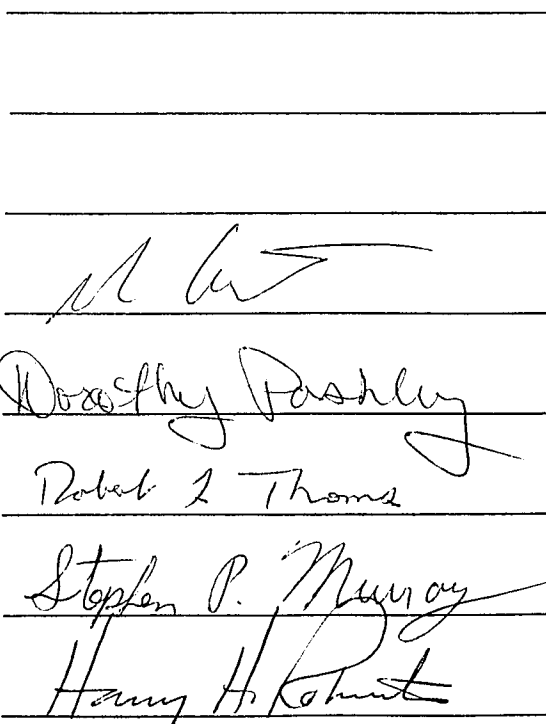 Dorothy Pashley
Robert L Thoms
Stephen P. Murray
Harry H. Roberts